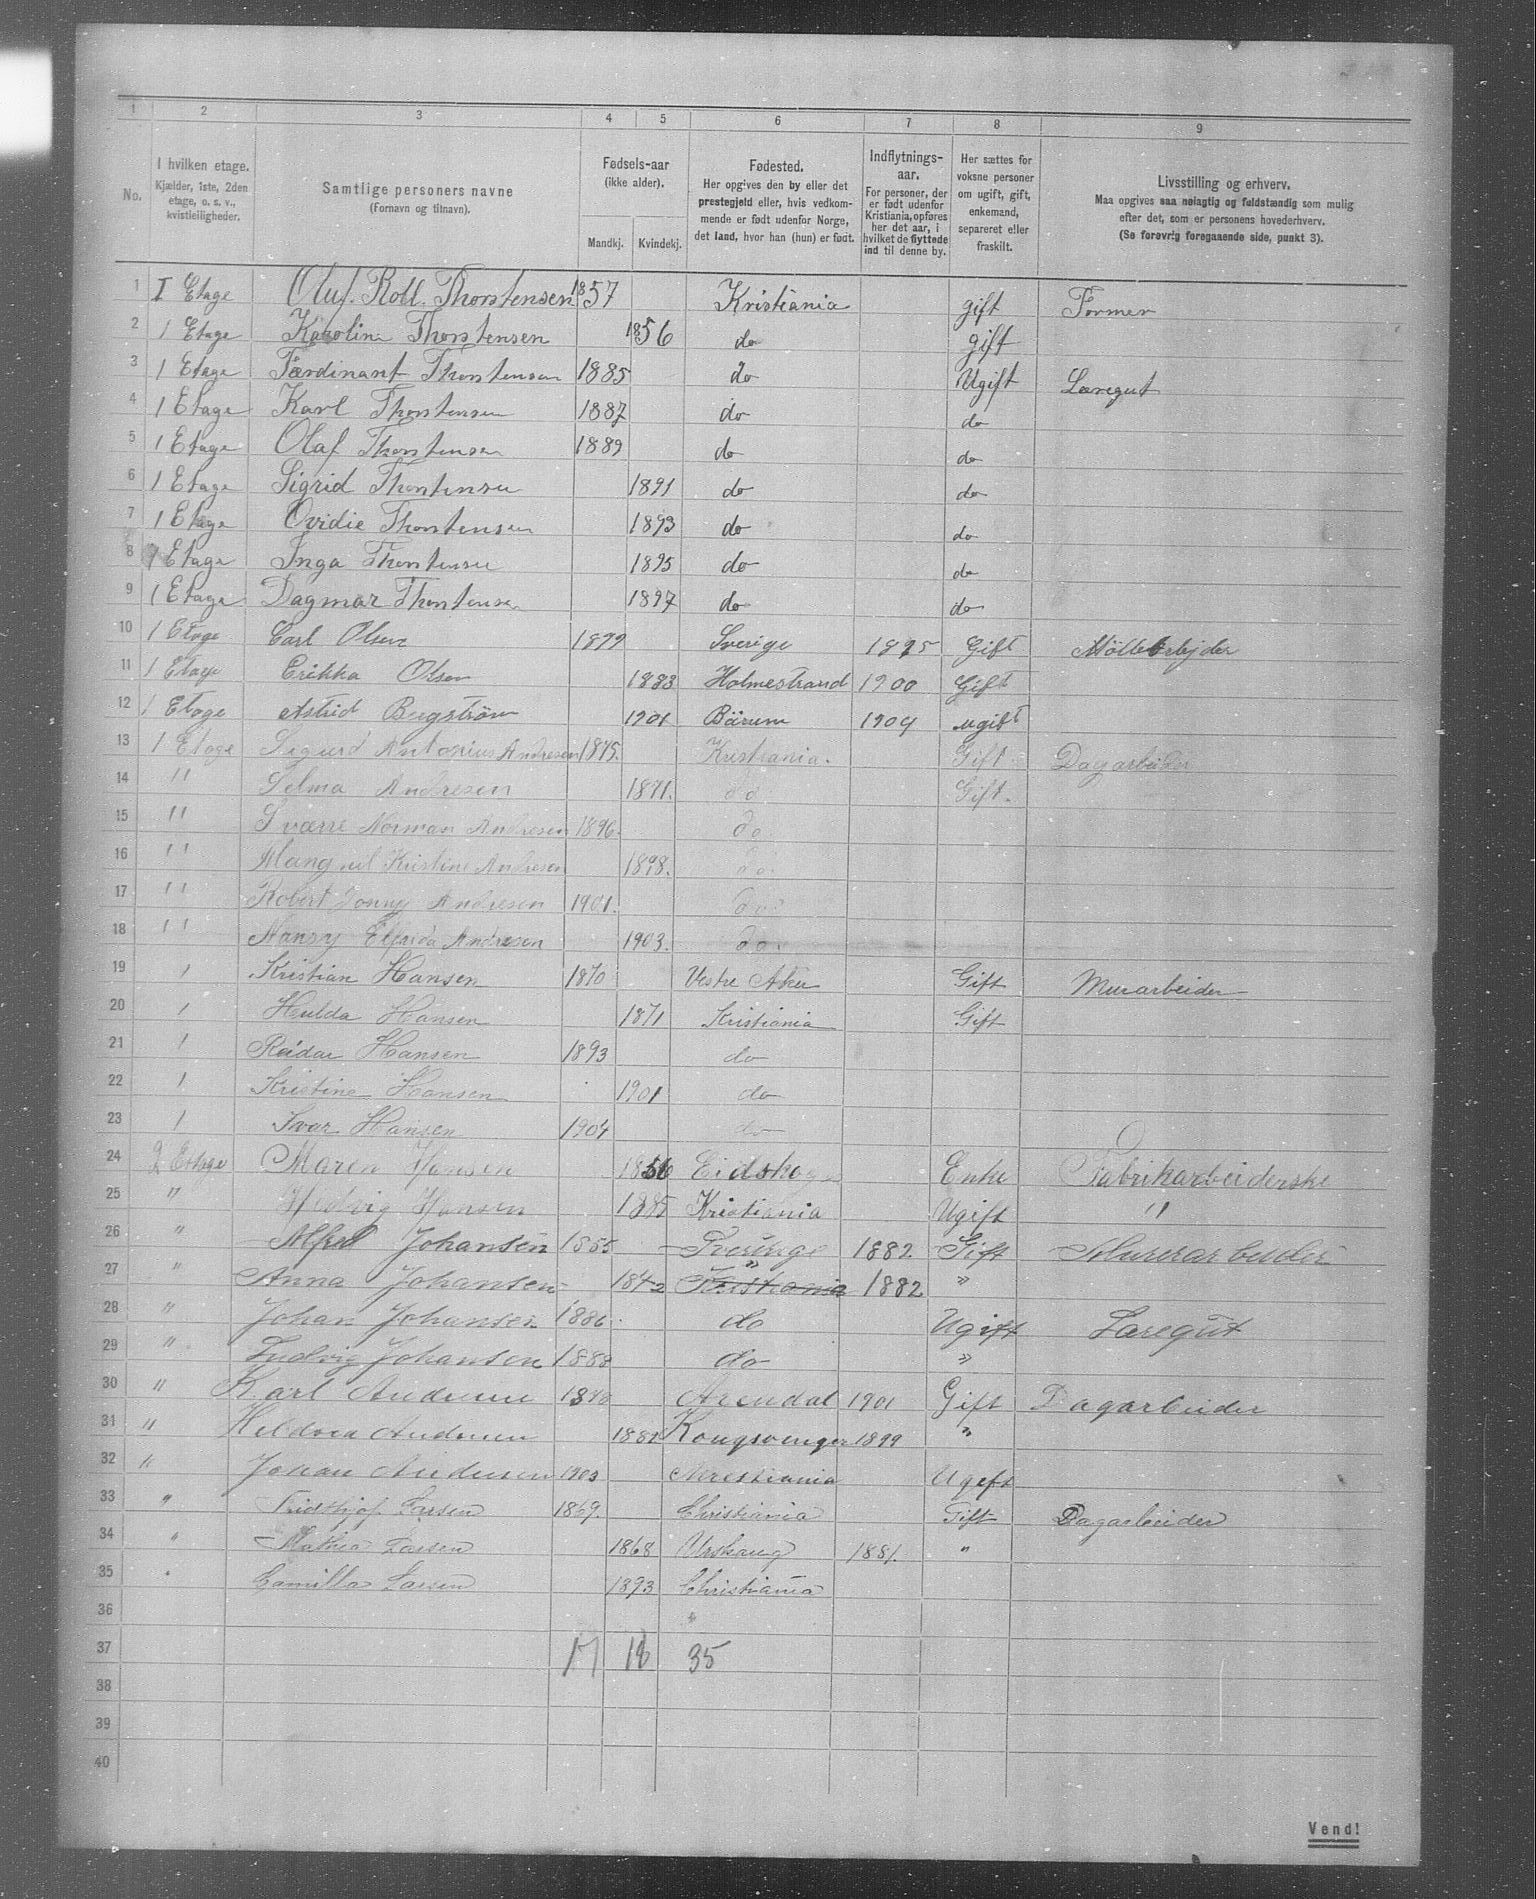 1 2 3 4 5 6 7 8 9
No.
I hvilken etage.
Kjælder, 1ste, 2den
etage, o. s. v.,
kvistleiligheder.
Samtlige personers navne
(Fornavn og tilnavn).
Fødsels-aar
(ikke alder).
Mandkj. Kvindekj.
Fødested.
Her opgives den by eller det
prestegjeld eller, hvis vedkom-
mende er født udenfor Norge,
det land, hvor han (hun) er født.
Indflytnings-
aar.
For personer, der
er født udenfor
Kristiania, opføres
her det aar, i
hvilket de flyttede
ind til denne by.
Her sættes for
voksne personer
om ugift, gift,
enkemand,
separeret eller
fraskilt.
Livsstilling og erhverv.
Maa opgives saa nøiagtig og fuldstændig som mulig
efter det, som er personens hovederhverv.
(Se forøvrig foregaaende side, punkt 3).
1 I Etage Oluf. Roll. Thorstensen 1857 Kristiania gift Former
2 1 Etage Karoline Thorstensen 1856 do gift
3 1 Etage Færdinant Thorstensen 1885 do Ugift Læregut
4 1 Etage Karl Thorstensen 1887 do do
5 1 Etage Olaf Thorstensen 1889 do do
6 1 Etage Sigrid Thorstensen 1891 do do
7 1 Etage Ovidie Thorstensen 1893 do do
8 1 Etage Inga Thorstensen 1895 do do
9 1 Etage Dagmar Thorstensen 1897 do do
10 1 Etage Carl Olsen Sverige Gift
11 1 Etage Erikka Olsen 1883 Holmestrand 1900 Gift
12 1 Etage Astrid Bugström 1901 Bärum 1904 ugift
13 1 Etage Sigurd Antonius Andresen 1875. Kristiania. Gift Dagarbeider
14 " Selma Andresen 1871. do Gift.
15 " Sværre Norman Andresen 1896. do.
16 " Kristine Andresen 1898. do.
17 " Robert Andresen 1901. do.
18 " Nansy Elfrida Andresen 1903. do.
19 1 Kristian Hansen 1870 Vestre Aker Gift Murarbeider
20 1 Hulda Hansen 1871 Kristiania Gift
21 1 Reidar Hansen 1893 do
22 1 Kristine Hansen 1901 do
23 1 Ivar Hansen 1904 do
24 2 Etage Maren Hansen 1856 Eidskog Enke Fabrikarbeiderske
25 " Hedvig Hansen 1885 Kristiania Ugift "
26 " Alfred Johansen 1855 Sverige 1882 Gift Murerarbeider
27 " Anna Johansen 1842 " Kristiania 1882 "
28 " Johan Johansen 1886 do Ugift Læregut
29 " Ludvig Johansen 1888 do "
30 " Karl Andersen Arendal 1901 Gift Dagarbeider
31 " Andersen 1882 Kongsvinger 1899 "
32 " Johan Andersen 1903 Kristiania Ugift
33 " Fridthjof Larsen 1869. Christiania Gift Dagarbeider
34 " Mathea Larsen 1868 Urskoug 1881. "
35 " Camilla Larsen 1893 Christiania
36 "
37 17 18 35
38
39
40
Vend!